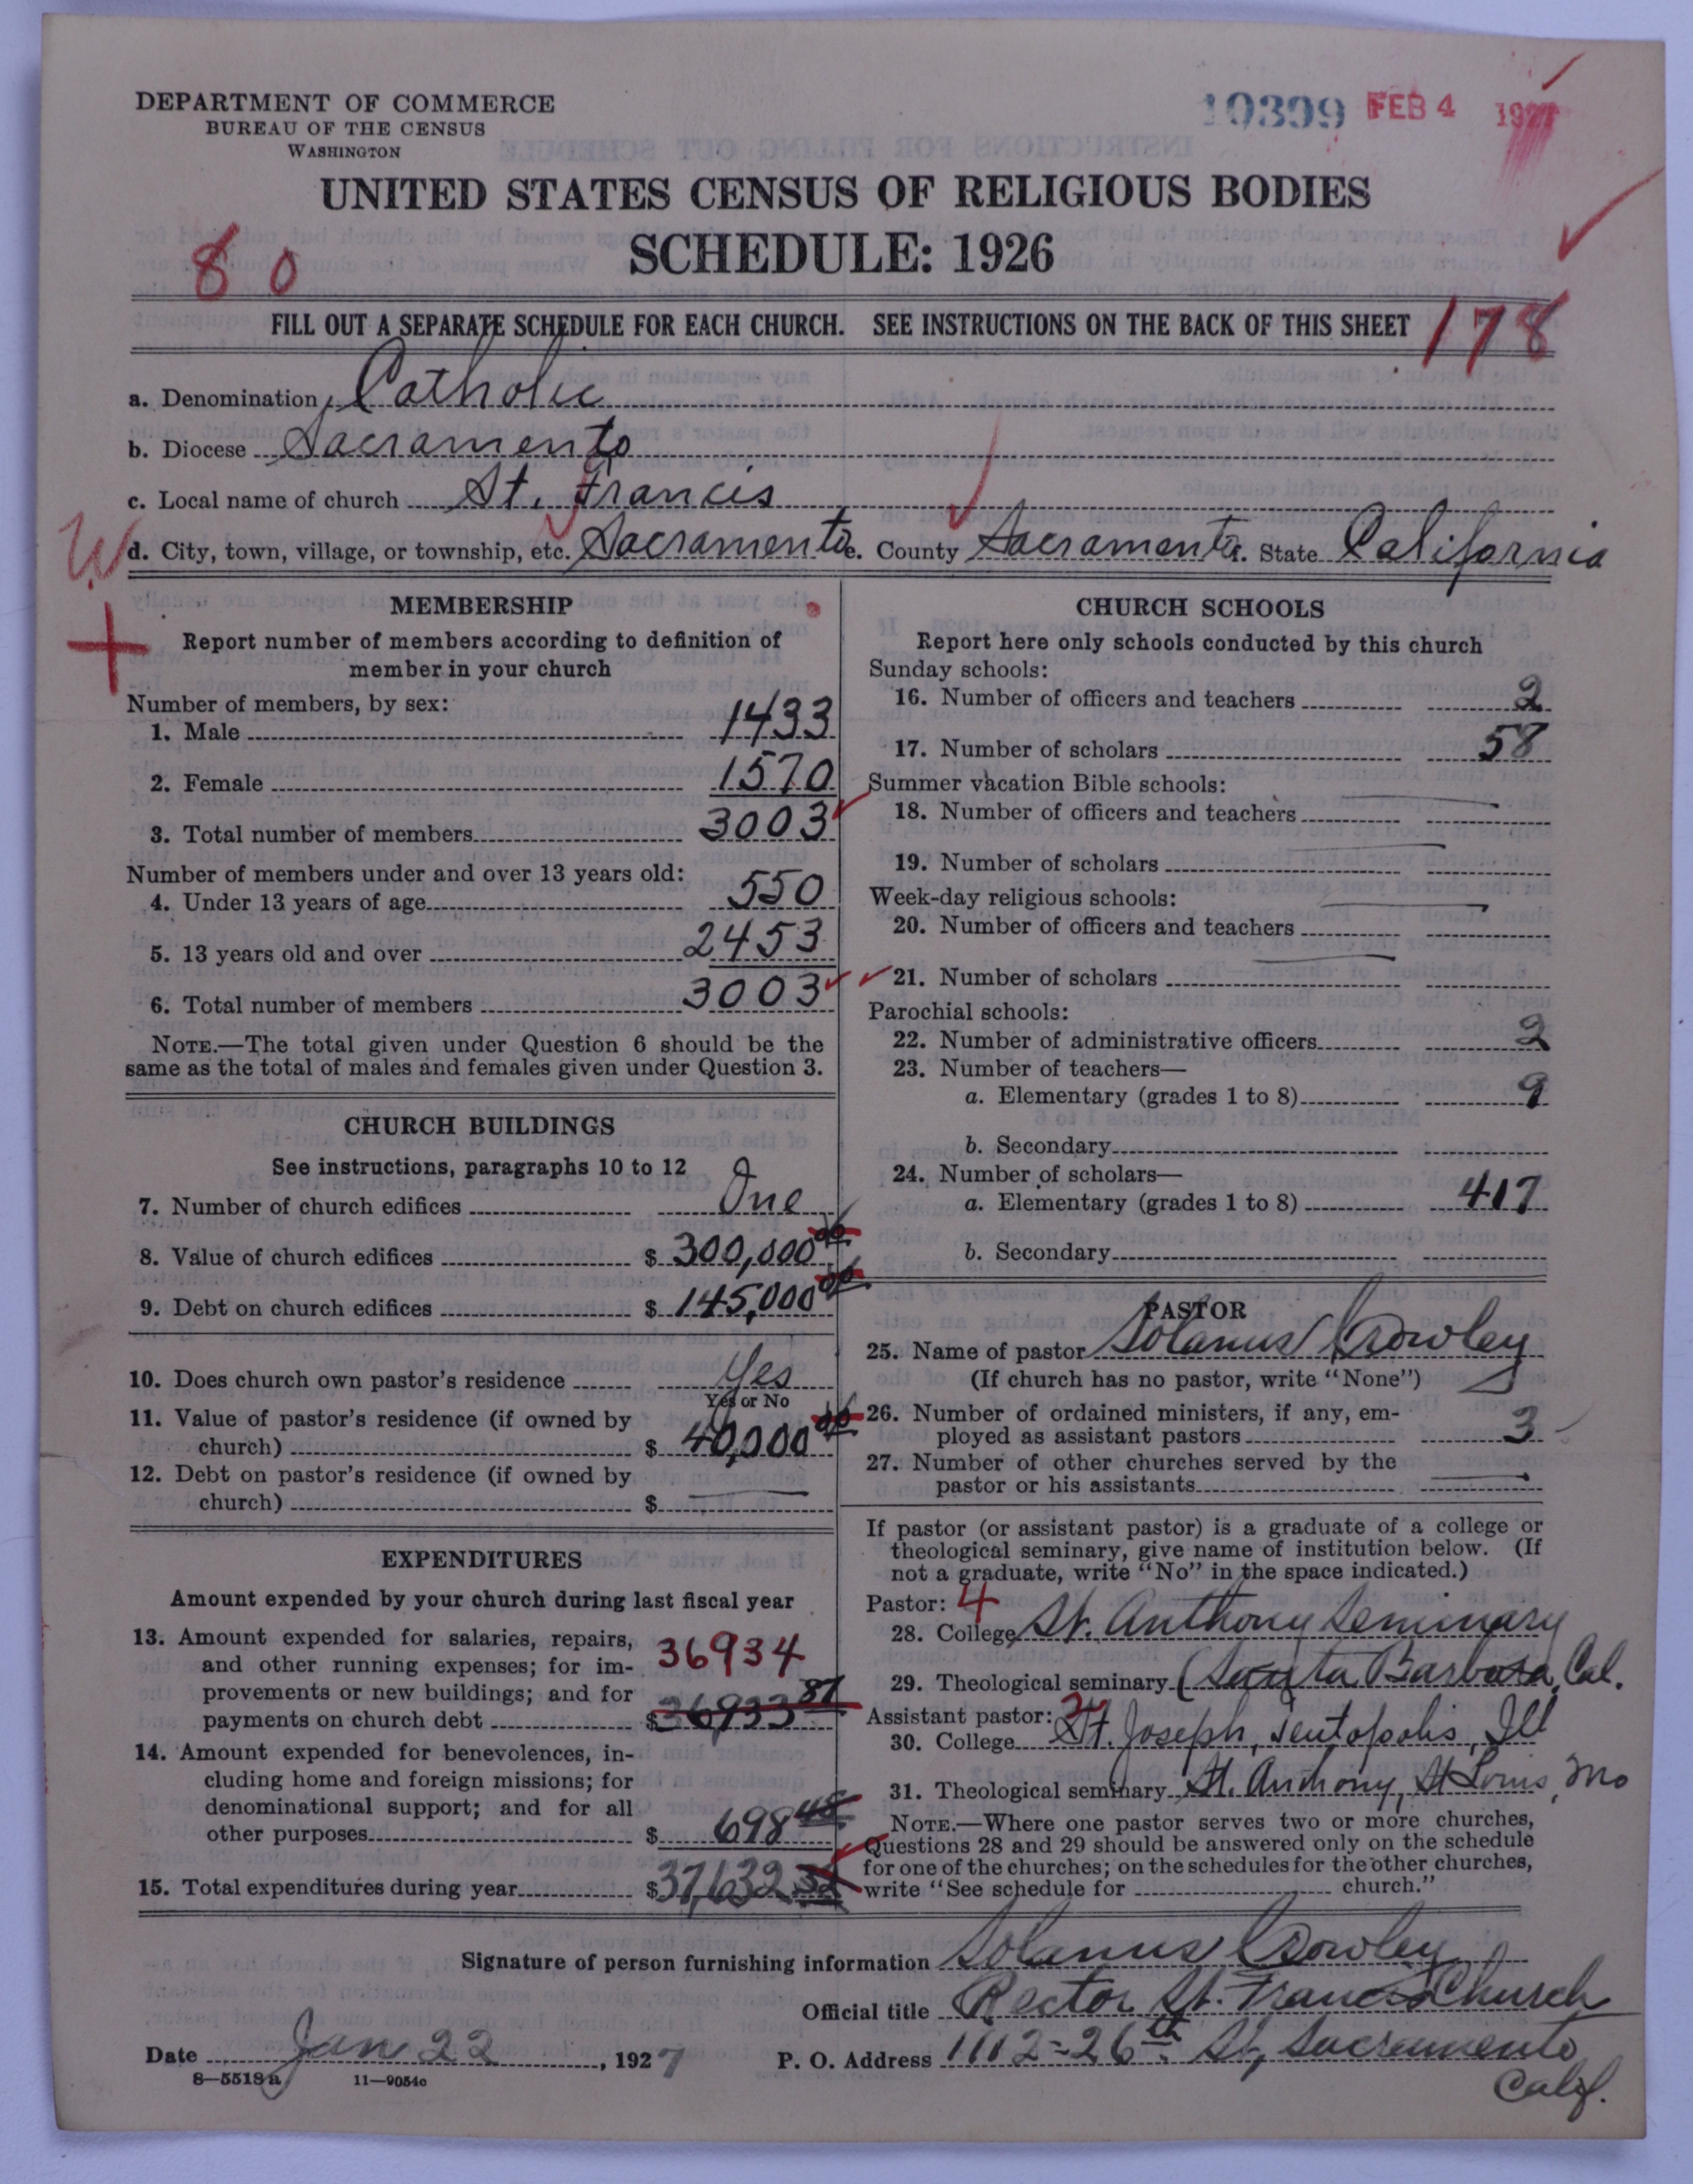 DEPARTMENT OF COMMERCE
BUREAU OF THE CENSUS
WASHINGTON
10399 FEB 4 1927
UNITED STATES CENSUS OF RELIGIOUS BODIES
SCHEDULE: 1926
80
FILL OUT A SEPARATE SCHEDULE FOR EACH CHURCH. SEE INSTRUCTIONS ON THE BACK OF THIS SHEET
178
a. Denomination Catholic
b. Diocese Sacramento
c. Local name of church St. Francis
W
d. City, town, village, or township, etc. Sacramento e. County Sacramento f. State California
MEMBERSHIP
Report number of members according to definition of
member in your church
Number of members, by sex:
1. Male 1433
2. Female 1570
3. Total number of members 3003
Number of members under and over 13 years old:
4. Under 13 years of age 550
5. 13 years old and over 2453
6. Total number of members 3003
NOTE.—The total given under Question 6 should be the
same as the total of males and females given under Question 3.
CHURCH BUILDINGS
See instructions, paragraphs 10 to 12
7. Number of church edifices One
8. Value of church edifices $ 300,000 00
9. Debt on church edifices $ 145,000 00
10. Does church own pastor's residence Yes
Yes or No
11. Value of pastor's residence (if owned by
church) $ 40,000 00
12. Debt on pastor's residence (if owned by
church) $
EXPENDITURES
Amount expended by your church during last fiscal year
13. Amount expended for salaries, repairs,
and other running expenses; for im-
provements or new buildings; and for
payments on church debt $ 36933 87
36934
14. Amount expended for benevolences, in-
cluding home and foreign missions; for
denominational support; and for all
other purposes $ 698 45
15. Total expenditures during year $ 37,632 32
CHURCH SCHOOLS
Report here only schools conducted by this church
Sunday schools:
16. Number of officers and teachers 2
17. Number of scholars 58
Summer vacation Bible schools:
18. Number of officers and teachers
19. Number of scholars
Week-day religious schools:
20. Number of officers and teachers
21. Number of scholars
Parochial schools:
22. Number of administrative officers 2
23. Number of teachers—
a. Elementary (grades 1 to 8) 9
b. Secondary
24. Number of scholars—
a. Elementary (grades 1 to 8) 417
b. Secondary
PASTOR
25. Name of pastor Solanus Crowley
(If church has no pastor, write "None")
26. Number of ordained ministers, if any, em-
ployed as assistant pastors 3
27. Number of other churches served by the
pastor or his assistants
If pastor (or assistant pastor) is a graduate of a college or
theological seminary, give name of institution below. (If
not a graduate, write "No" in the space indicated.)
Pastor: 4
28. College St. Anthony Seminary
29. Theological seminary (Santa Barbara, Cal.
Assistant pastor: 2
30. College St. Joseph, Teutopolis, Ill
31. Theological seminary St. Anthony, St Louis, Mo
NOTE.—Where one pastor serves two or more churches,
Questions 28 and 29 should be answered only on the schedule
for one of the churches; on the schedules for the other churches,
write "See schedule for church."
Signature of person furnishing information Solanus Crowley
Official title Rector St. Francis Church
Date Jan 22, 1927 P. O. Address 1112-26th St, Sacramento
Calif.
8—5518a 11—9054c